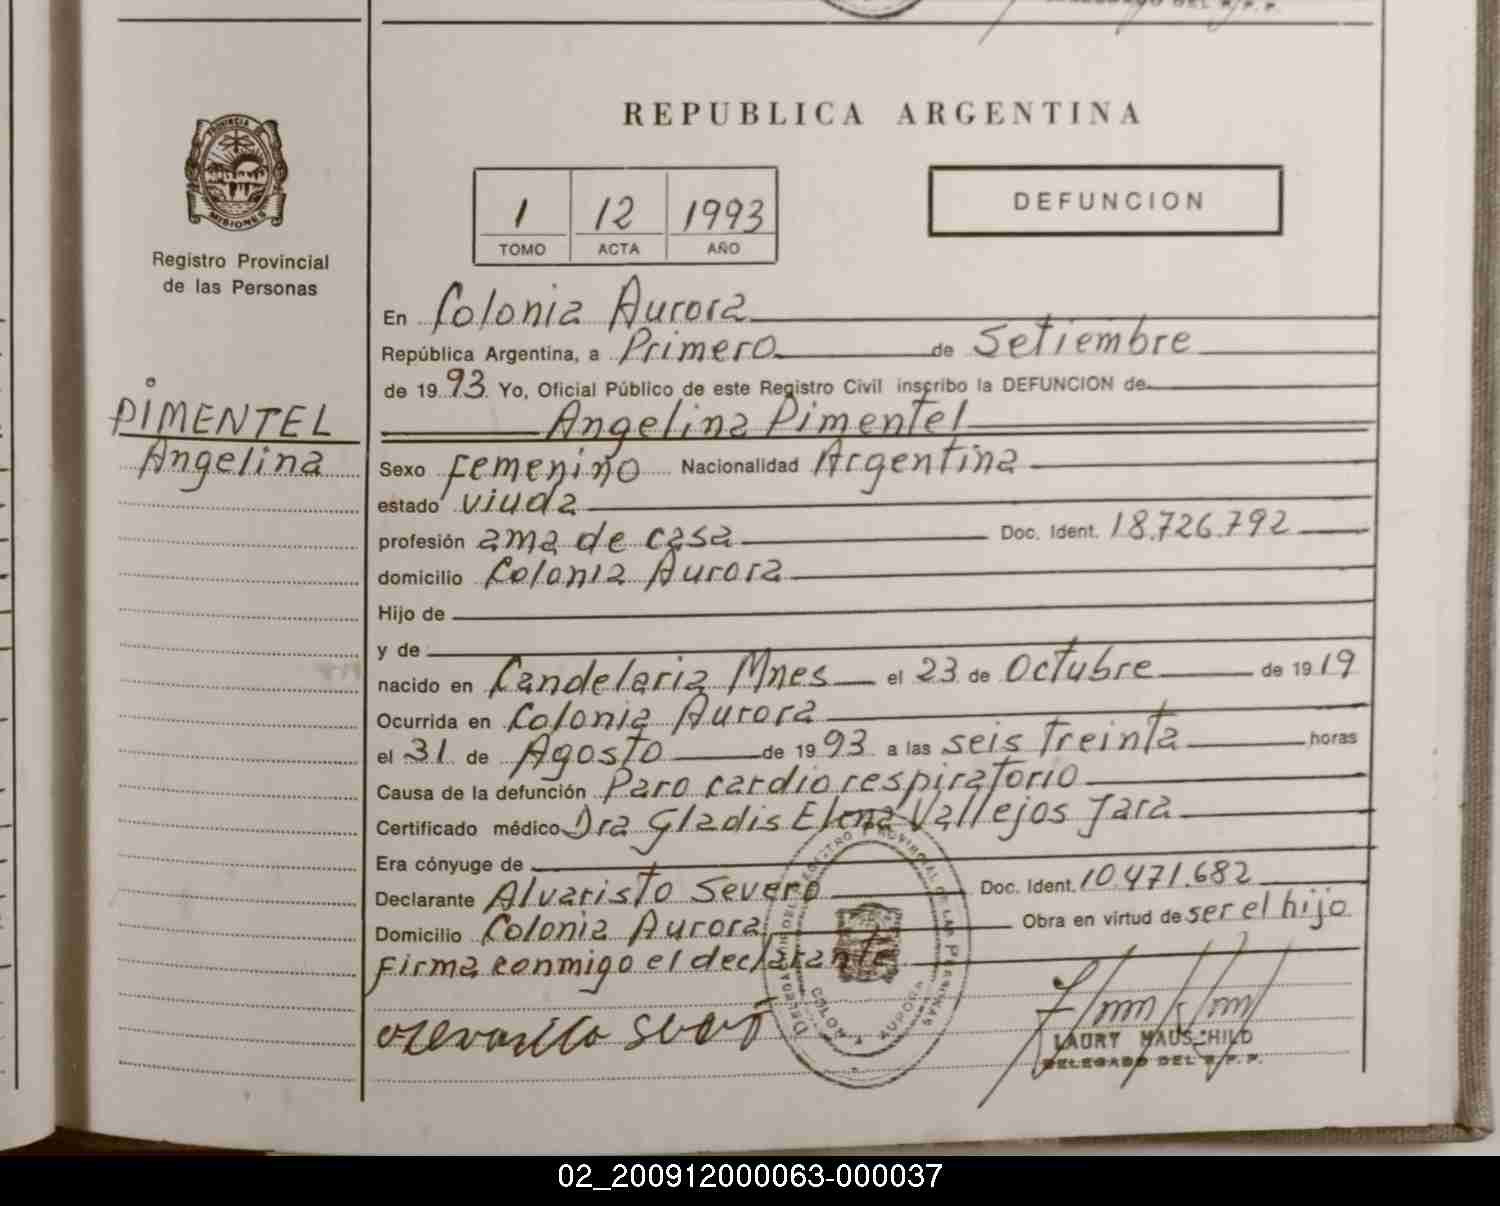 REPUBLICA ARGENTINA
PROVINCIA DE
MISIONES
Registro Provincial
de las Personas
1 12 1993
TOMO ACTA AÑO
DEFUNCION
PIMENTEL
Angelina
En Colonia Aurora
República Argentina, a Primero de Setiembre
de 1993. Yo, Oficial Público de este Registro Civil inscribo la DEFUNCION de
Angelina Pimentel
Sexo femenino Nacionalidad Argentina
estado viuda
profesión ama de casa Doc. Ident. 18.726.792
domicilio Colonia Aurora
Hijo de
y de
nacido en Candelaria Mnes el 23 de Octubre de 1919
Ocurrida en Colonia Aurora
el 31 de Agosto de 1993 a las seis treinta horas
Causa de la defunción Paro cardiorespiratorio
Certificado médico Dra Gladis Elena Vallejos Jara
Era cónyuge de
Declarante Alvaristo Severo Doc. Ident. 10.471.682
Domicilio Colonia Aurora Obra en virtud de ser el hijo
firma conmigo el declarante
LAURY HAUSCHILD
DELEGADO DEL R.P.P.
02_200912000063-000037